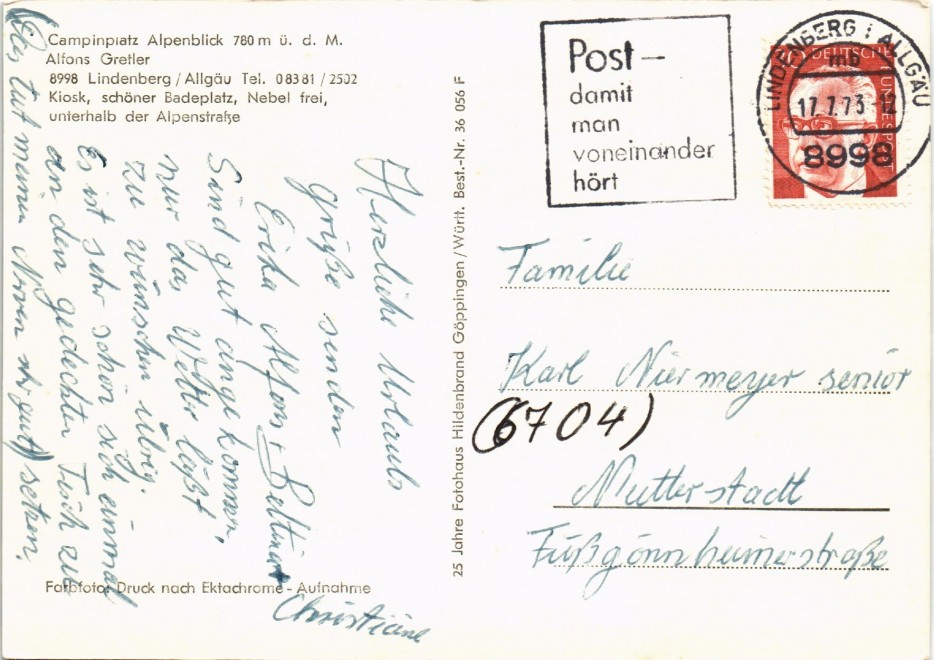 Campinplatz Alpenblick 780 m ü. d. M.
Alfons Gretler
8998 Lindenberg/Allgäu Tel. 08381/2502
Kiosk, schöner Badeplatz, Nebel frei,
unterhalb der Alpenstraße
Herzliche Urlaubs
grüße senden
Erika Alfons Bettina +
Christiane
Sind gut angekommen,
nur das Wetter läßt
zu wünschen übrig.
Es ist sehr schön sich einmal
an den gedeckten Tisch zu
setzen,
(Das tut meinen Nerven sehr gut)
Farbfoto: Druck nach Ektachrome-Aufnahme
25 Jahre Fotohaus Hildenbrand Göppingen/Württ. Best.-Nr. 36 056 F
Post –
damit
man
voneinander
hört
LINDENBERG i ALLGÄU
mb
17.7.73-12
8998
DEUTSCHE BUNDESPOST
Familie
Karl Niermeyer senior
(6704)
Mutterstadt
Fußgönnheimerstraße